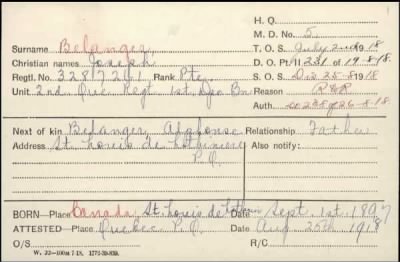 H. Q.
M. D. No. 5
Surname Belanger,
T. O. S. July 2nd 1918
Christian names Joseph
D. O. Pt. II 231 of 19-8-18.
Regtl. No. 3287261 Rank Pte.
S. O. S. Dis 25-8-1918
Unit 2nd Que. Regt. 1st. Dep Bn
Reason
Auth. 238 of 26-8-18.
Next of kin Belanger, Alphonse Relationship Father
Address St. Louis de Lotbiniere Also notify:
P.Q.
BORN—Place Canada, St. Louis de Date Sept. 1st. 1897
ATTESTED—Place Quebec P.Q. Date Aug 1918
O/S R/C